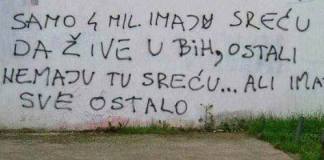 SAMO 4 MIL IMAJU SREĆU
DA ŽIVE U BiH, OSTALI
NEMAJU TU SREĆU... ALI IMA
SVE OSTALO